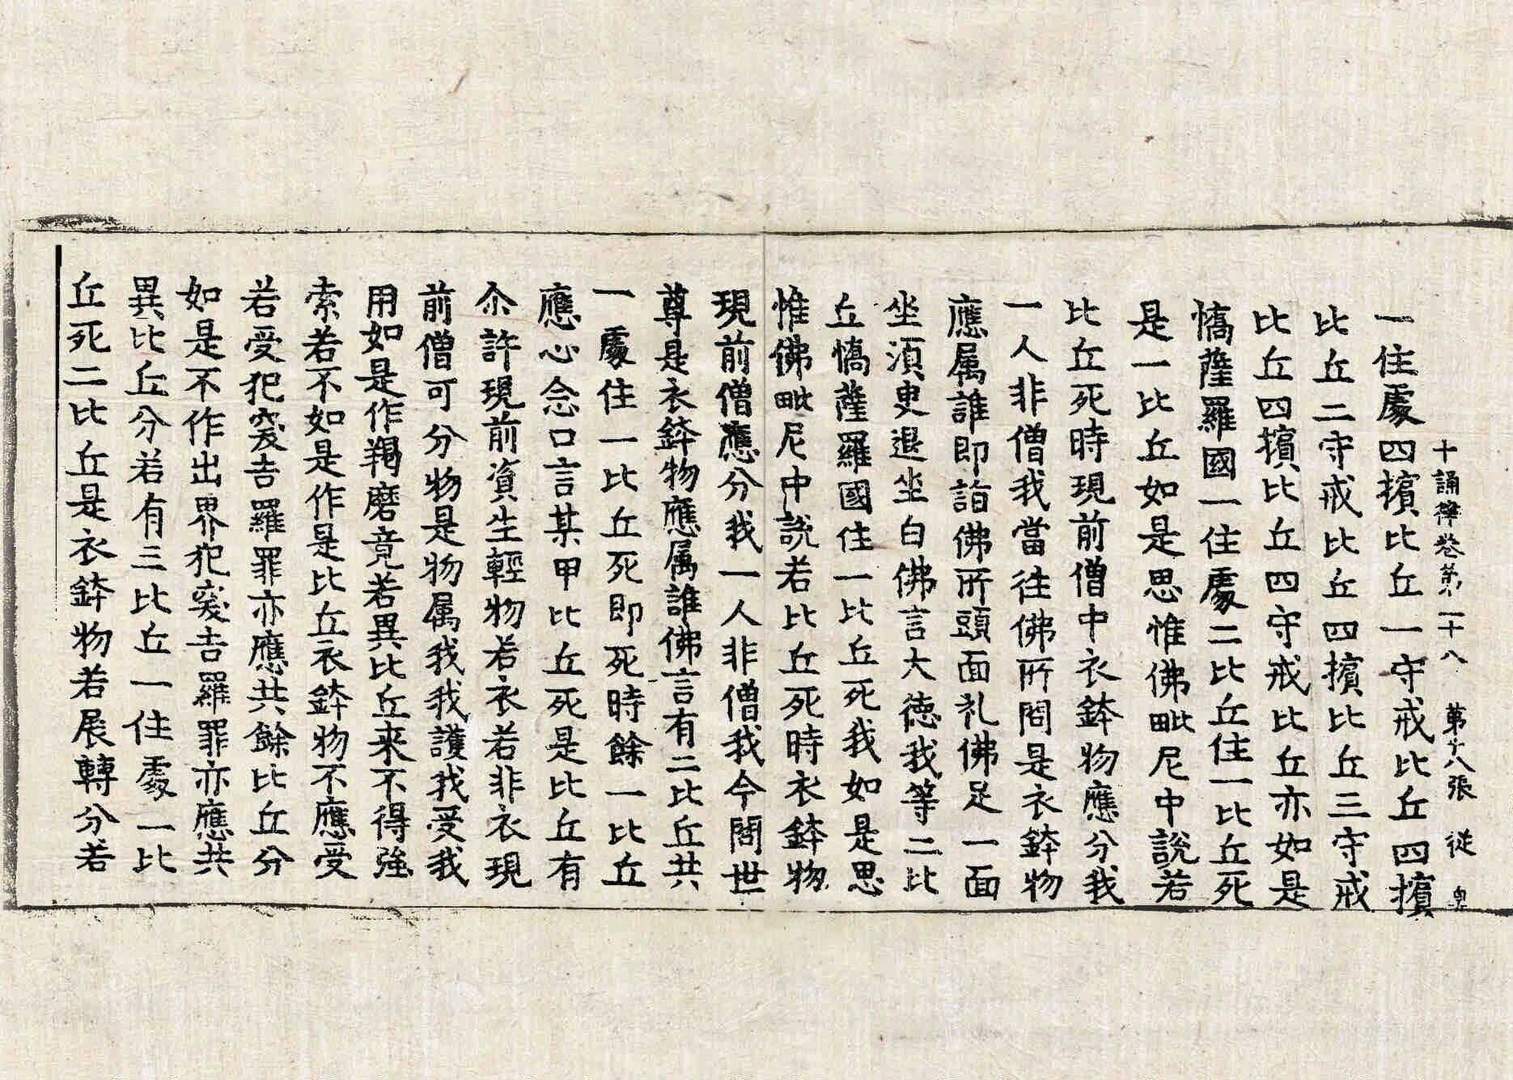 十誦律卷第二十八　第十八張　従
一住處四擯比丘一守戒比丘四擯
比丘二守戒比丘四擯比丘三守戒
比丘四擯比丘四守戒比丘亦如是
憍薩羅國一住處二比丘住一比丘死
是一比丘如是思惟佛毗尼中說若
比丘死時現前僧中衣鉢物應分我
一人非僧我當往佛所問是衣鉢物
應属誰即詣佛所頭面礼佛足一面
坐須臾退坐白佛言大德我等二比
丘憍薩羅國住一比丘死我如是思
惟佛毗尼中說若比丘死時衣鉢物
現前僧應分我一人非僧我今問世
尊是衣鉢物應属誰佛言有二比丘共
一處住一比丘死即死時餘一比丘
應心念口言某甲比丘死是比丘有
尒許現前資生輕物若衣若非衣現
前僧可分物是物属我我護我受我
用如是作羯磨竟若異比丘来不得強
索若不如是作是比丘衣鉢物不應受
若受犯突吉羅罪亦應共餘比丘分
如是不作出界犯突吉羅罪亦應共
異比丘分若有三比丘一住處一比
丘死二比丘是衣鉢物若展轉分若